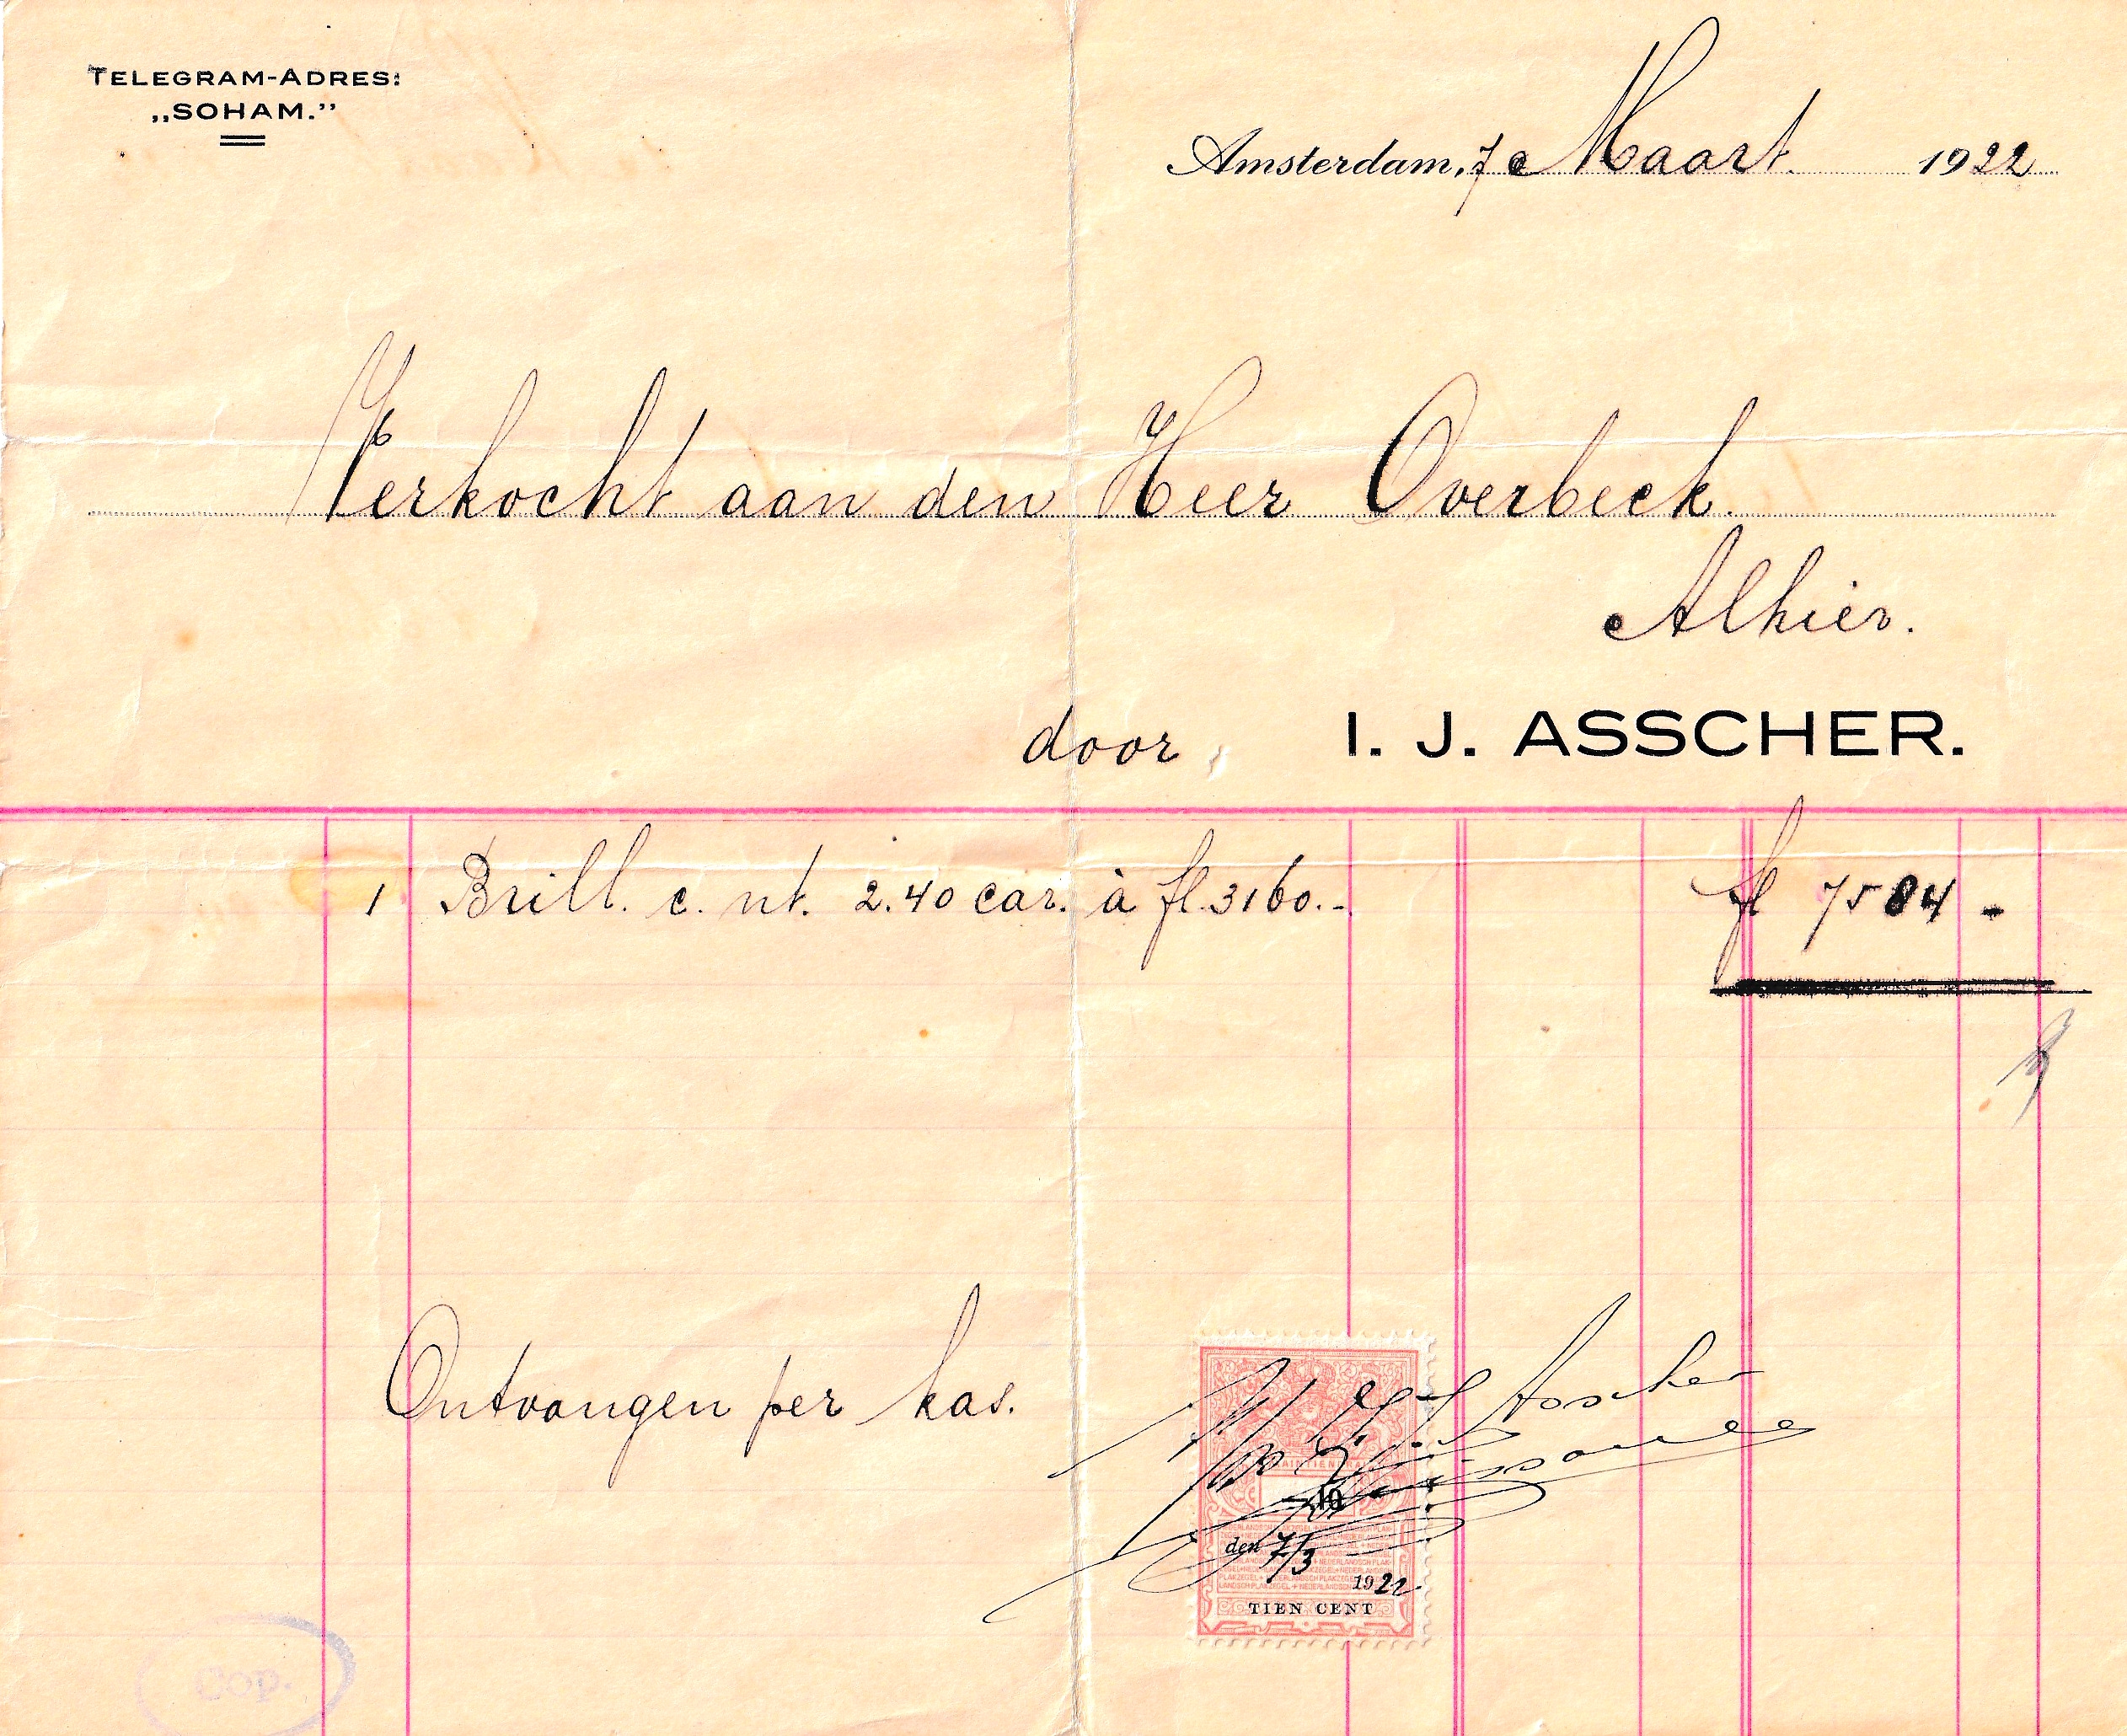 TELEGRAM-ADRES:
„SOHAM.”
Amsterdam, 7 Maart. 1922
Verkocht aan den Heer Overbeek.
Alhier.
door I. J. ASSCHER.
1 Brill. c. nt. 2.40 car. à fl. 3160.- fl 7584 -
Ontvangen per kas.
Asscher
10
den 7/3
1922.
TIEN CENT
Cop.